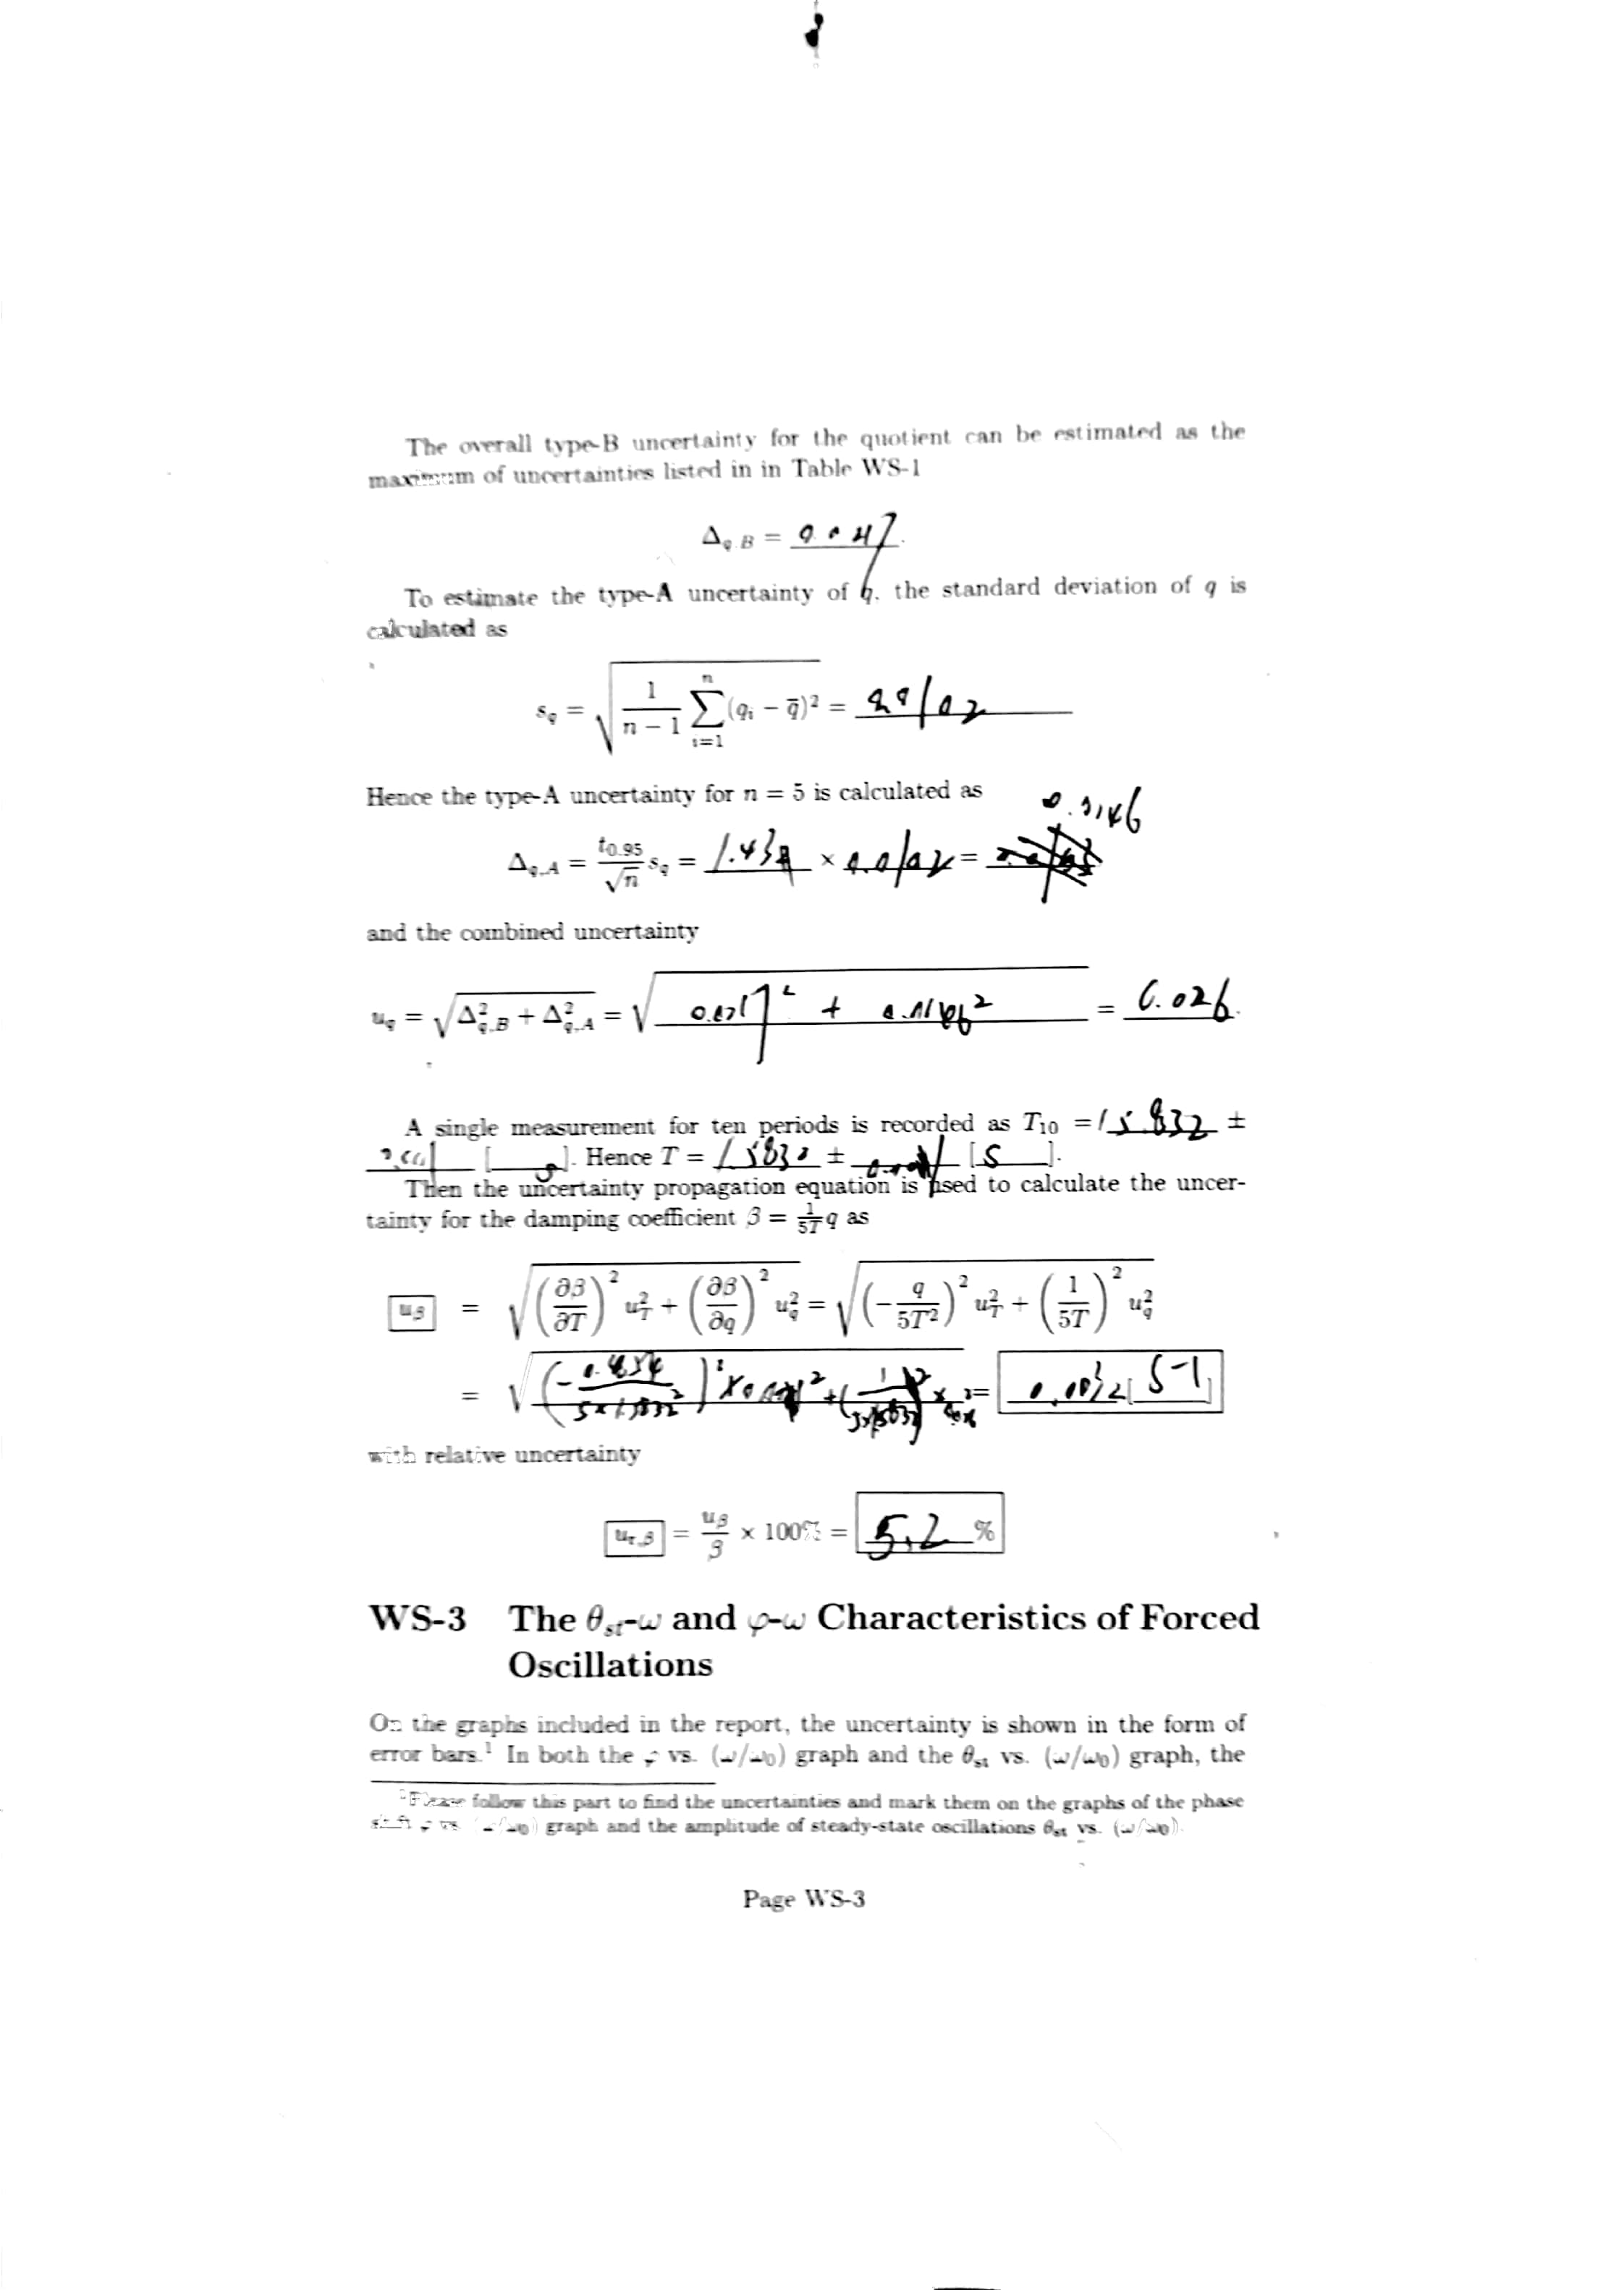 The overall type-B uncertainty for the quotient can be estimated as the
maximum of uncertainties listed in in Table WS-1
Δq,B =
To estimate the type-A uncertainty of q, the standard deviation of q is
calculated as
s_q = √(1/(n − 1) ∑_{i=1}^{n} (q_i − q̄)²) =
Hence the type-A uncertainty for n = 5 is calculated as
Δq,A = t0.95/√n s_q = × =
and the combined uncertainty
u_q = √(Δ²q,B + Δ²q,A) = √ + = 0.026.
A single measurement for ten periods is recorded as T10 = 15.832 ±
Hence T = ± [S].
Then the uncertainty propagation equation is used to calculate the uncer-
tainty for the damping coefficient β = 1/5T q as
u_β = √((∂β/∂T)² u²_T + (∂β/∂q)² u²_q) = √((−q/5T²)² u²_T + (1/5T)² u²_q)
= √ = 0.0032 [S-1]
with relative uncertainty
u_r,β = u_β/β × 100% = 5.2 %
WS-3 The θst-ω and φ-ω Characteristics of Forced
Oscillations
On the graphs included in the report, the uncertainty is shown in the form of
error bars.¹ In both the φ vs. (ω/ω0) graph and the θst vs. (ω/ω0) graph, the
¹Please follow this part to find the uncertainties and mark them on the graphs of the phase
shift φ vs. (ω/ω0) graph and the amplitude of steady-state oscillations θst vs. (ω/ω0).
Page WS-3